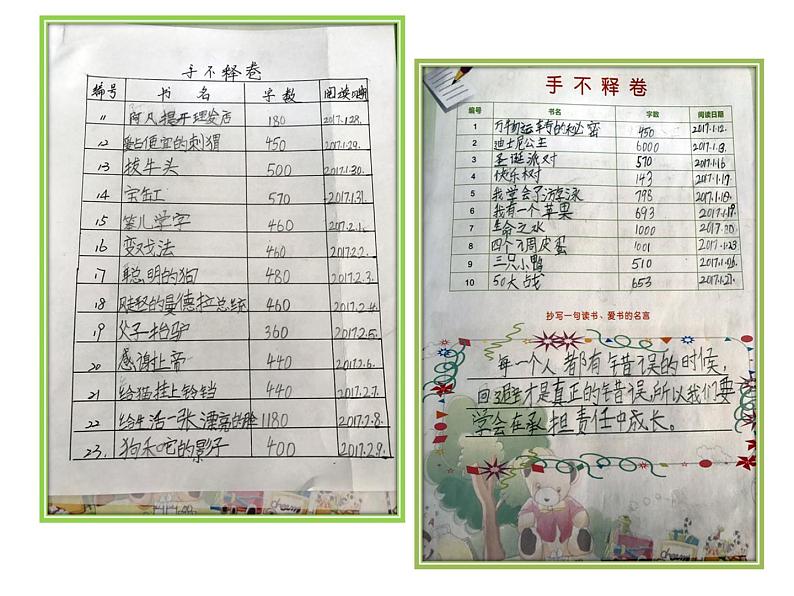 手不释卷
编号 书名 字数 阅读日期
11 阿凡提开理发店 180 2017.1.28.
12 爱占便宜的刺猬 450 2017.1.29.
13 拔牛头 500 2017.1.30.
14 宝缸 570 2017.1.31.
15 笨儿学字 460 2017.2.1.
16 变戏法 460 2017.2.2.
17 聪明的狗 480 2017.2.3.
18 的曼德拉总统 460 2017.2.4.
19 父子抬驴 360 2017.2.5.
20 感谢上帝 440 2017.2.6.
21 给猫挂上铃铛 440 2017.2.7.
22 给生活一张漂亮的脸 1180 2017.2.8.
23. 狗和它的影子 400 2017.2.9.
手不释卷
编号 书名 字数 阅读日期
1 万物运转的秘密 450 2017.1.12.
2 迪士尼公主 6000 2017.1.13.
3 圣诞派对 570 2017.1.16
4 快乐树 143 2017.1.17
5 我学会了游泳 798 2017.1.18.
6 我有一个苹果 693 2017.1.19.
7 生命之水 1000
8 四个调皮蛋 1001 2017.1.23
9 三只小鸭 510 2017.1.26.
10 50大战 653 2017.1.27.
抄写一句读书、爱书的名言
每一个人都有错误的时候,
回避才是真正的错误,所以我们要
学会在承担责任中成长。